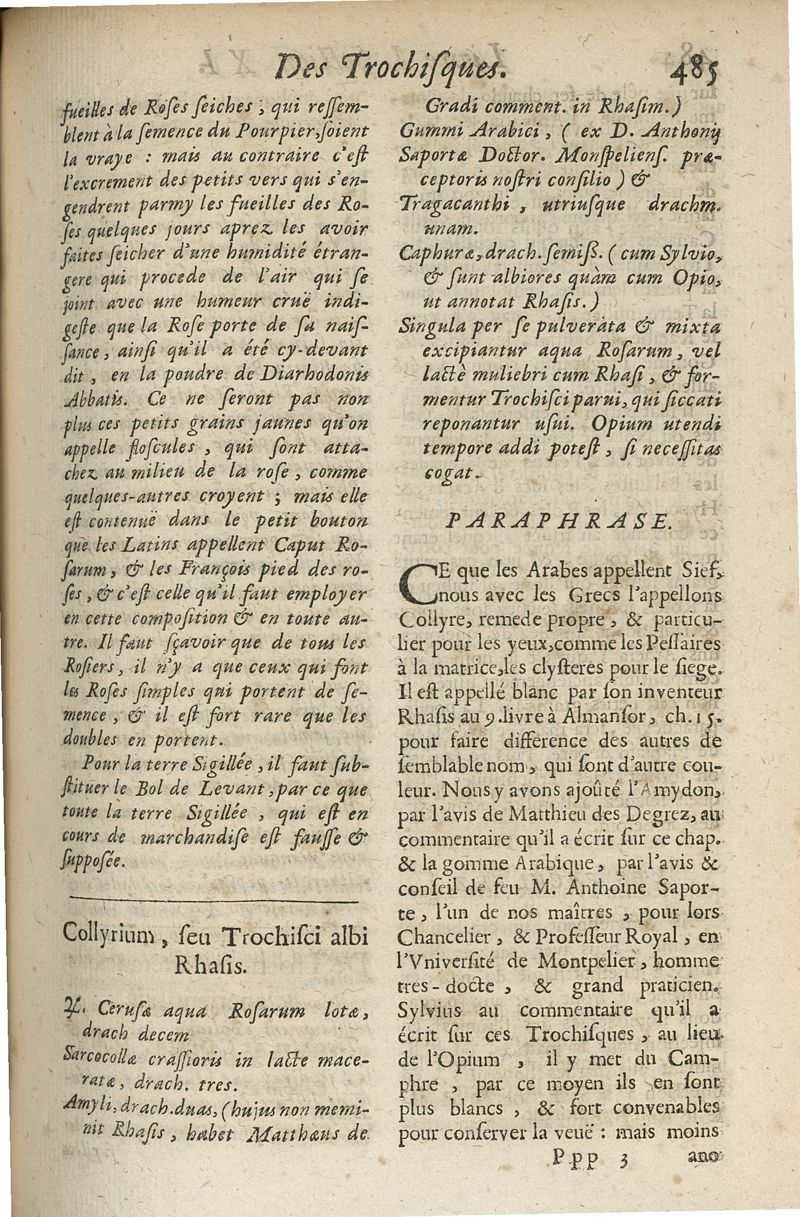 Des Trochiſques. 485
fueilles de Roſes ſeiches, qui reſſem-
blent à la ſemence du Pourpier, ſoient
la vraye : mais au contraire c'eſt
l'excrement des petits vers qui s'en-
gendrent parmy les fueilles des Ro-
ſes quelques jours aprez les avoir
faites ſeicher d'une humidité étran-
gere qui procede de l'air qui ſe
joint avec une humeur cruë indi-
geſte que la Roſe porte de ſa naiſ-
ſance, ainſi qu'il a été cy-devant
dit, en la poudre de Diarhodonis
Abbatis. Ce ne ſeront pas non
plus ces petits grains jaunes qu'on
appelle floſcules, qui ſont atta-
chez au milieu de la roſe, comme
quelques-autres croyent ; mais elle
eſt contenuë dans le petit bouton
que les Latins appellent Caput Ro-
ſarum, & les François pied des ro-
ſes, & c'eſt celle qu'il faut employer
en cette compoſition & en toute au-
tre. Il faut ſçavoir que de tous les
Roſiers, il n'y a que ceux qui font
les Roſes ſimples qui portent de ſe-
mence, & il eſt fort rare que les
doubles en portent.
Pour la terre Sigillée, il faut ſub-
ſtituer le Bol de Levant, par ce que
toute la terre Sigillée, qui eſt en
cours de marchandiſe eſt fauſſe &
ſuppoſée.
Collyrium, ſeu Trochiſci albi
Rhaſis.
℞. Ceruſæ aqua Roſarum lotæ,
drach decem
Sarcocollæ craſſioris in lacte mace-
ratæ, drach. tres.
Amyli, drach. duas, (hujus non memi-
nit Rhaſis, habet Matthæus de
Gradi comment. in Rhaſim.)
Gummi Arabici, ( ex D. Anthonij
Saportæ Doctor. Monſpelienſ. præ-
ceptoris noſtri conſilio ) &
Tragacanthi, utriuſque drachm.
unam.
Caphuræ, drach. ſemiß. ( cum Sylvio,
& ſunt albiores quàm cum Opio,
ut annotat Rhaſis.)
Singula per ſe pulverata & mixta
excipiantur aqua Roſarum, vel
lactè muliebri cum Rhaſi, & for-
mentur Trochiſci parui, qui ſiccati
reponantur uſui. Opium utendi
tempore addi poteſt, ſi neceſſitas
cogat.
PARAPHRASE.
CE que les Arabes appellent Sief,
nous avec les Grecs l'appellons
Collyre, remede propre, & particu-
lier pour les yeux, comme les Peſſaires
à la matrice, les clyſteres pour le ſiege.
Il eſt appellé blanc par ſon inventeur
Rhaſis au 9. livre à Almanſor, ch. 15.
pour faire difference des autres de
ſemblable nom, qui ſont d'autre cou-
leur. Nous y avons ajoûté l'Amydon,
par l'avis de Matthieu des Degrez, au
commentaire qu'il a écrit ſur ce chap.
& la gomme Arabique, par l'avis &
conſeil de feu M. Anthoine Sapor-
te, l'un de nos maîtres, pour lors
Chancelier, & Profeſſeur Royal, en
l'Vniverſité de Montpelier, homme
tres-docte, & grand praticien.
Sylvius au commentaire qu'il a
écrit ſur ces Trochiſques, au lieu
de l'Opium, il y met du Cam-
phre, par ce moyen ils en ſont
plus blancs, & fort convenables
pour conſerver la veuë : mais moins
Ppp 3 ano